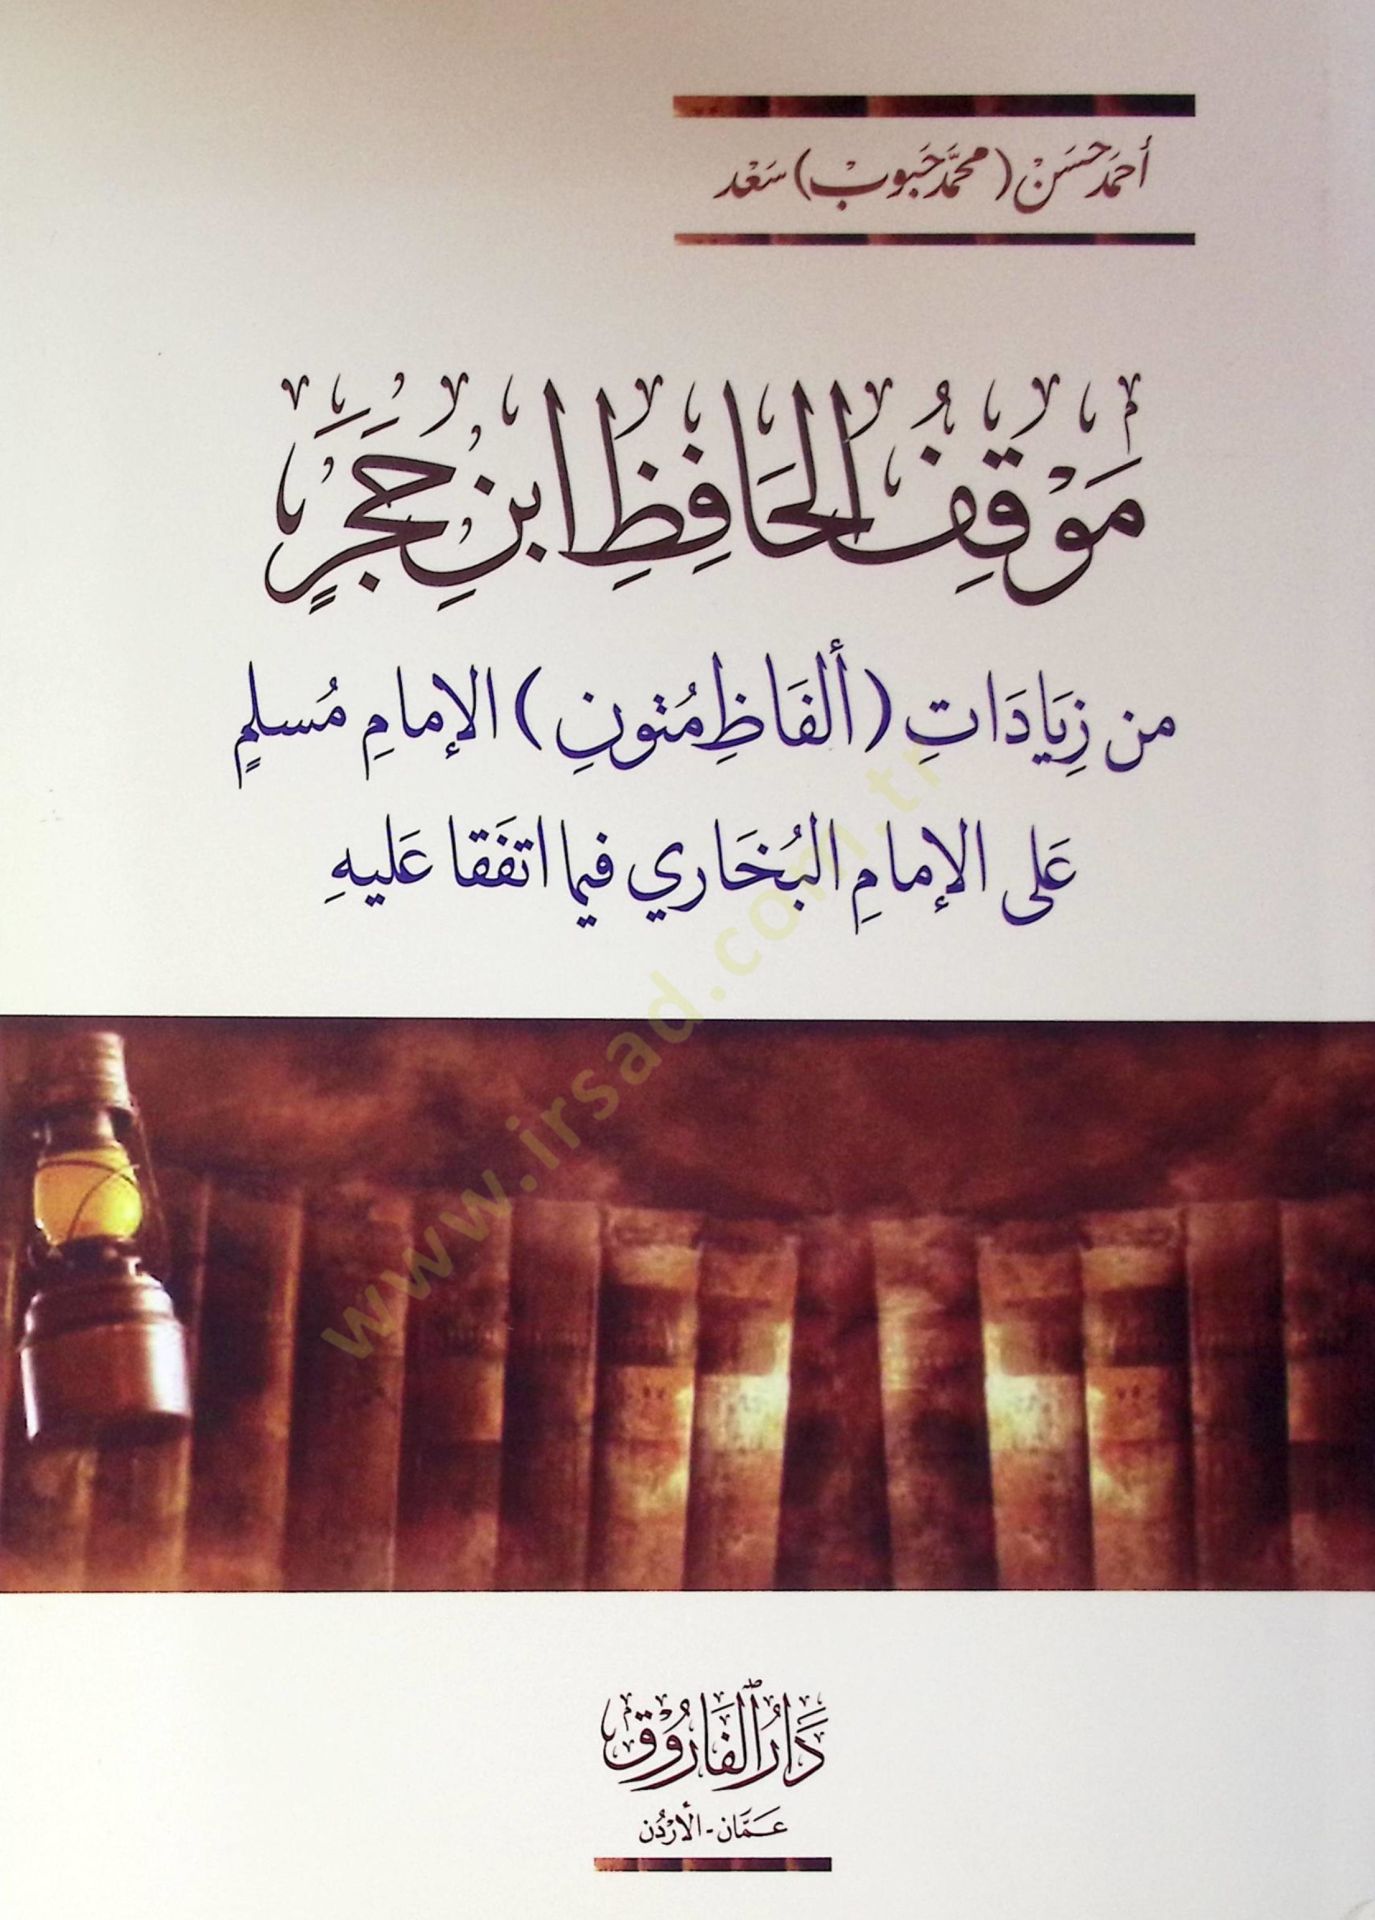 أحمد حسن (محمَّد حبوب) سَعْد
مَوْقِفُ الحَافِظِ ابنِ حَجَرٍ
من زِيَادَاتِ (ألفَاظِ مُتونِ) الإمامِ مُسلمٍ
عَلى الإمامِ البُخَاري فيما اتفَقا عَليهِ
www.irsad.com.tr
دَارُ الفَارُوْق
عَمَّان - الأرْدُن